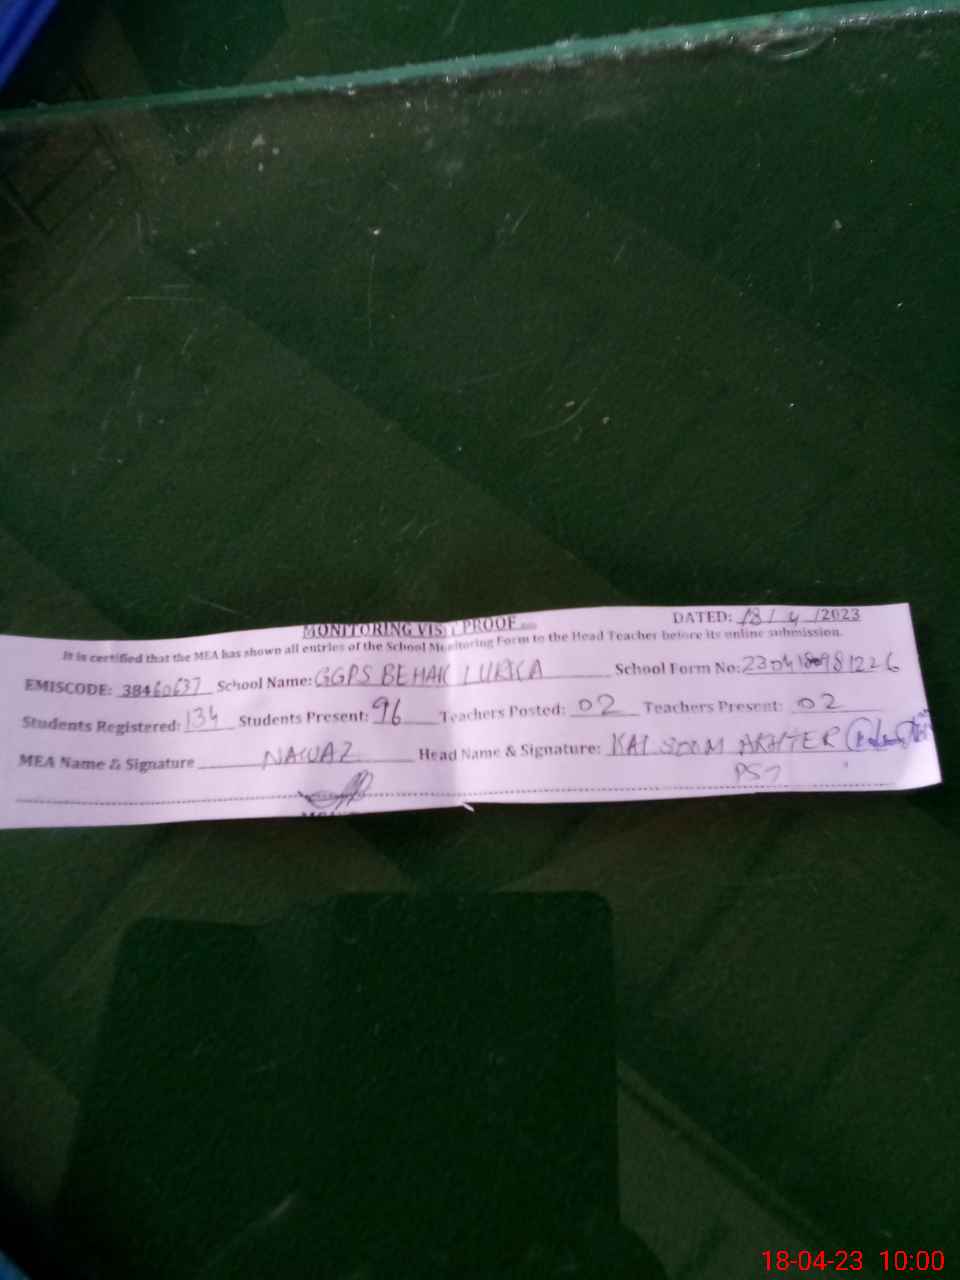 MONITORING VISIT PROOF
DATED: 18/4/2023
It is certified that the MEA has shown all entries of the School Monitoring Form to the Head Teacher before its online submission.
EMISCODE: 38460637 School Name: GGPS BEHAK LURKA School Form No: 230418098 1226
Students Registered: 134 Students Present: 96 Teachers Posted: 02 Teachers Present: 02
MEA Name & Signature NAWAZ Head Name & Signature: KALSOOM AKHTER
PST
18-04-23 10:00